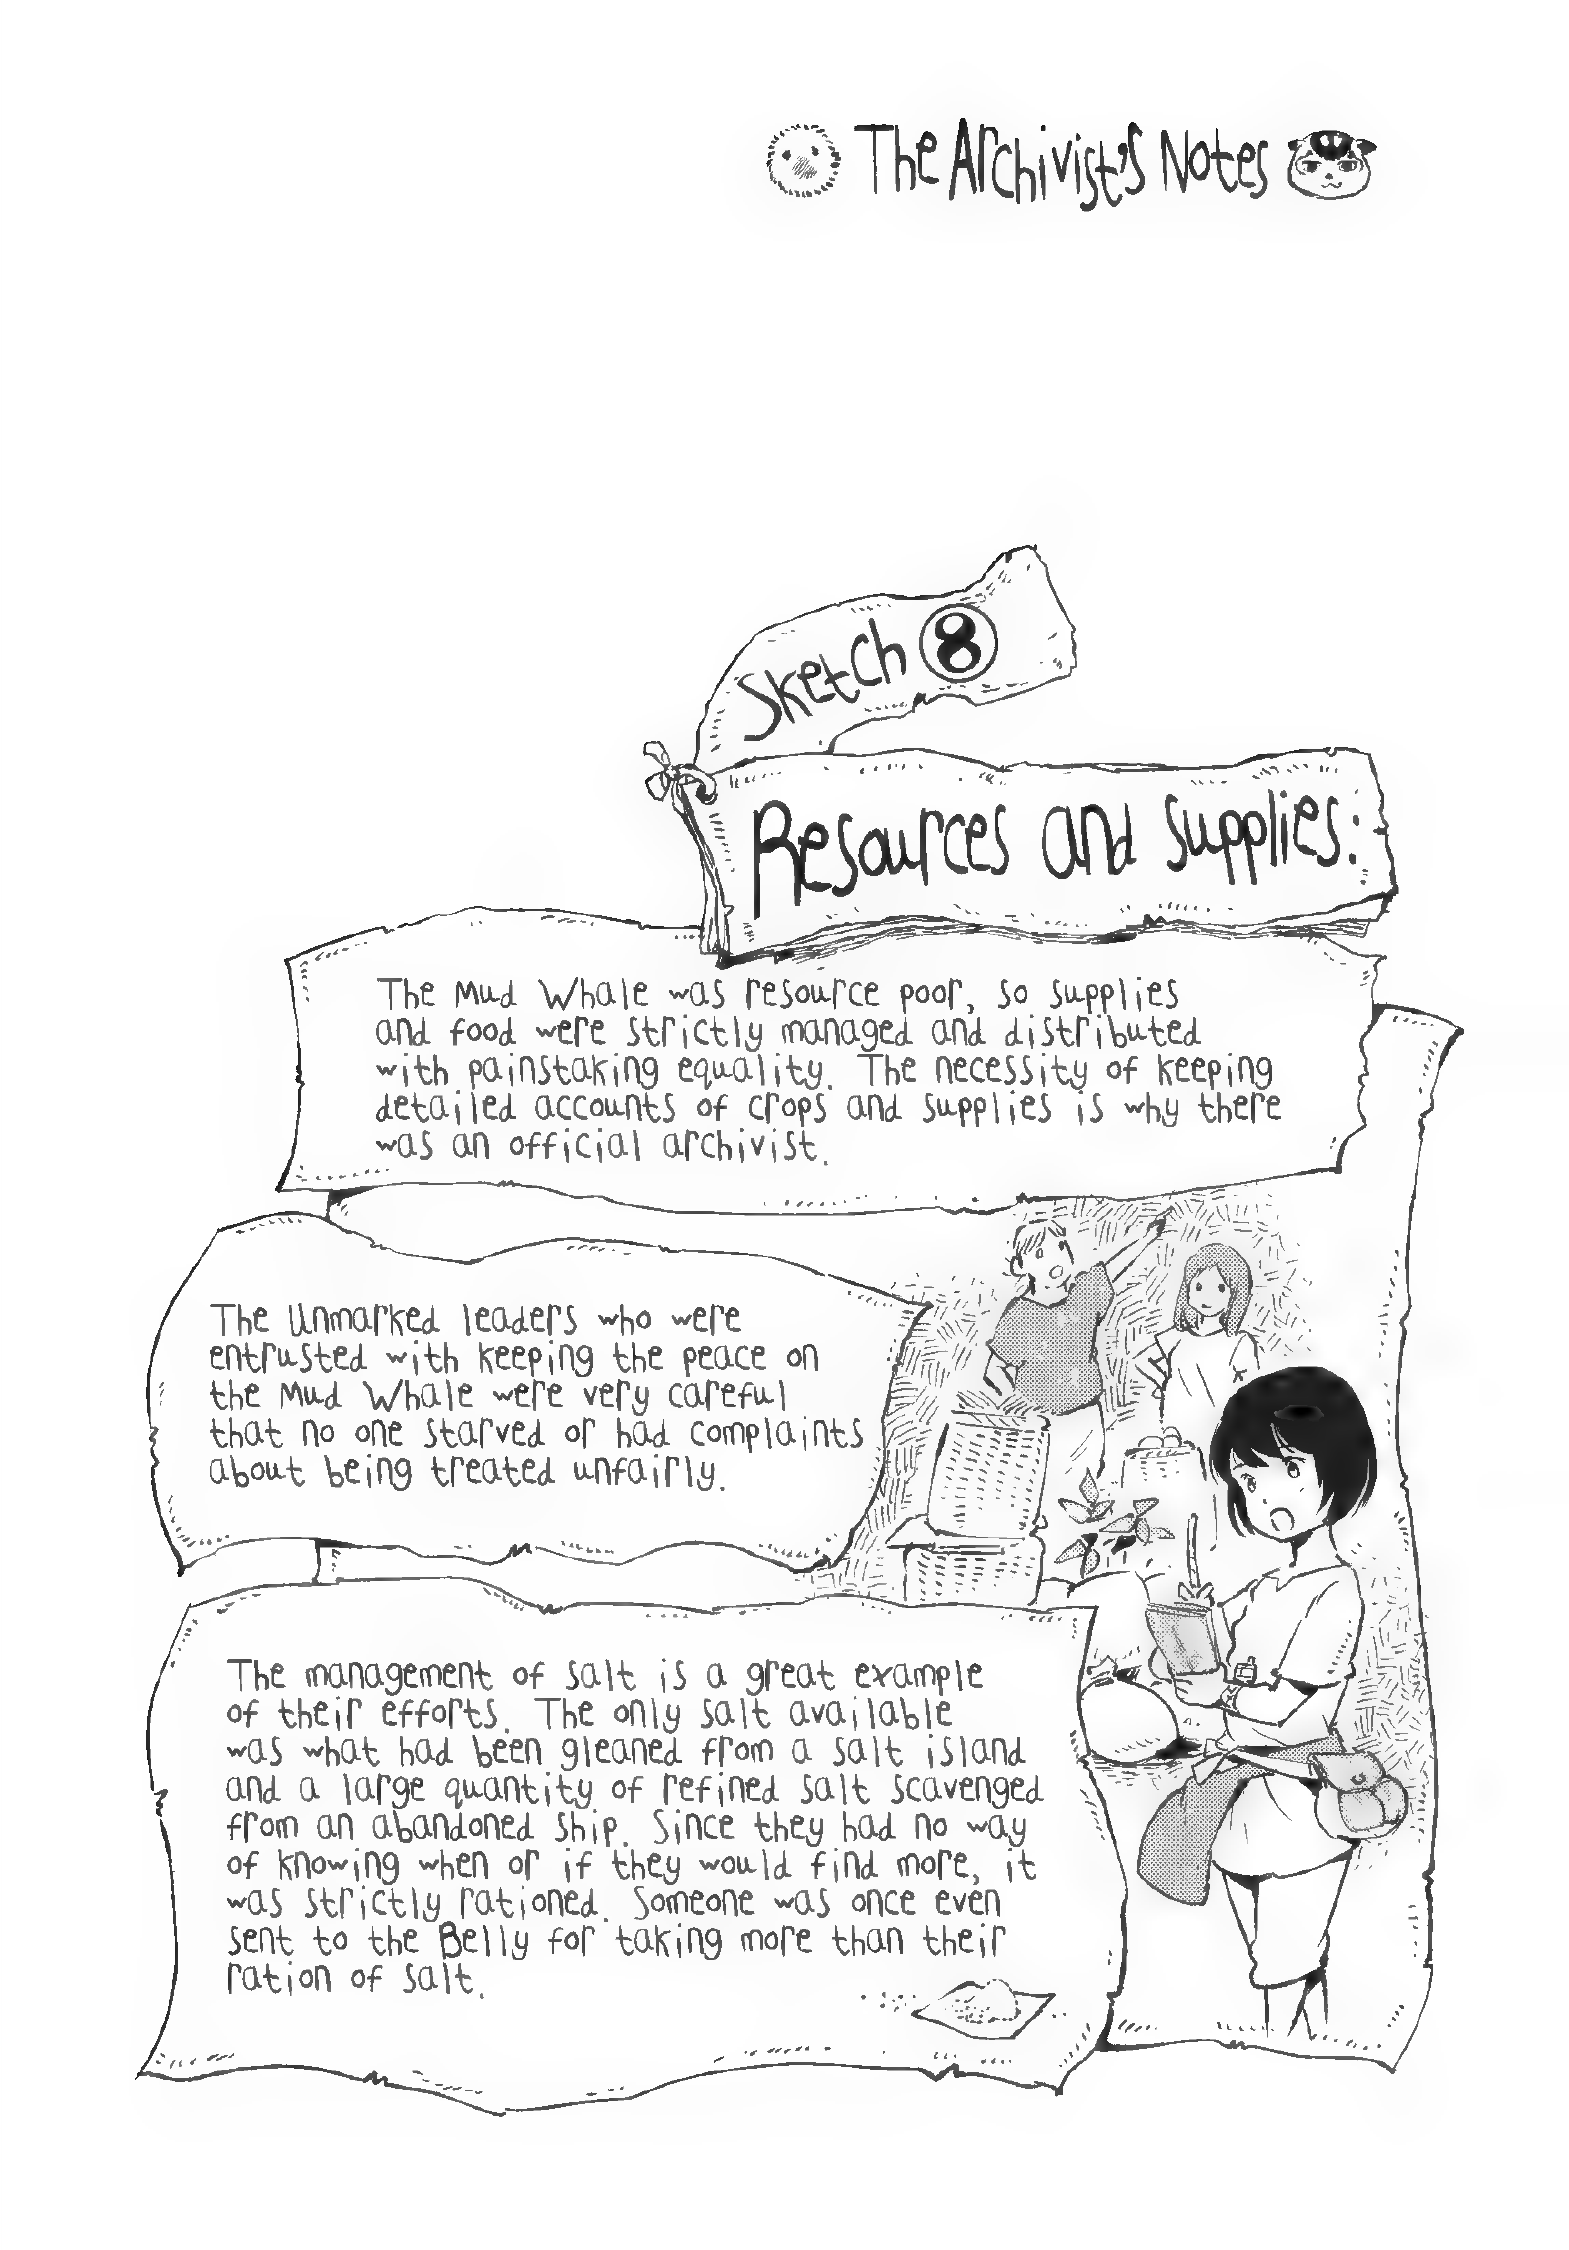 The Archivist's Notes
Sketch 8
Resources and Supplies:
The Mud Whale was resource poor, so supplies
and food were strictly managed and distributed
with painstaking equality. The necessity of keeping
detailed accounts of crops and supplies is why there
was an official archivist.
The Unmarked leaders who were
entrusted with keeping the peace on
the Mud Whale were very careful
that no one starved or had complaints
about being treated unfairly.
The management of salt is a great example
of their efforts. The only salt available
was what had been gleaned from a salt island
and a large quantity of refined salt scavenged
from an abandoned ship. Since they had no way
of knowing when or if they would find more, it
was strictly rationed. Someone was once even
sent to the Belly for taking more than their
ration of salt.